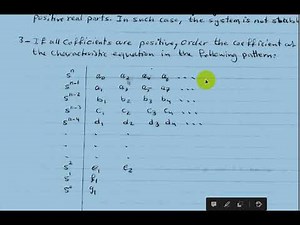 positive real parts. In such case, the system is not stable
3- If all Cofficients are positive, order the coefficient
the characteristic equation in the following pattern:
sⁿ a₀ a₂ a₄ a₆ ....
sⁿ⁻¹ a₁ a₃ a₅ a₇ ....
sⁿ⁻² b₁ b₂ b₃ b₄ ....
sⁿ⁻³ c₁ c₂ c₃ c₄ ....
sⁿ⁻⁴ d₁ d₂ d₃ d₄ ....
s² e₁ e₂
s¹ f₁
s⁰ g₁